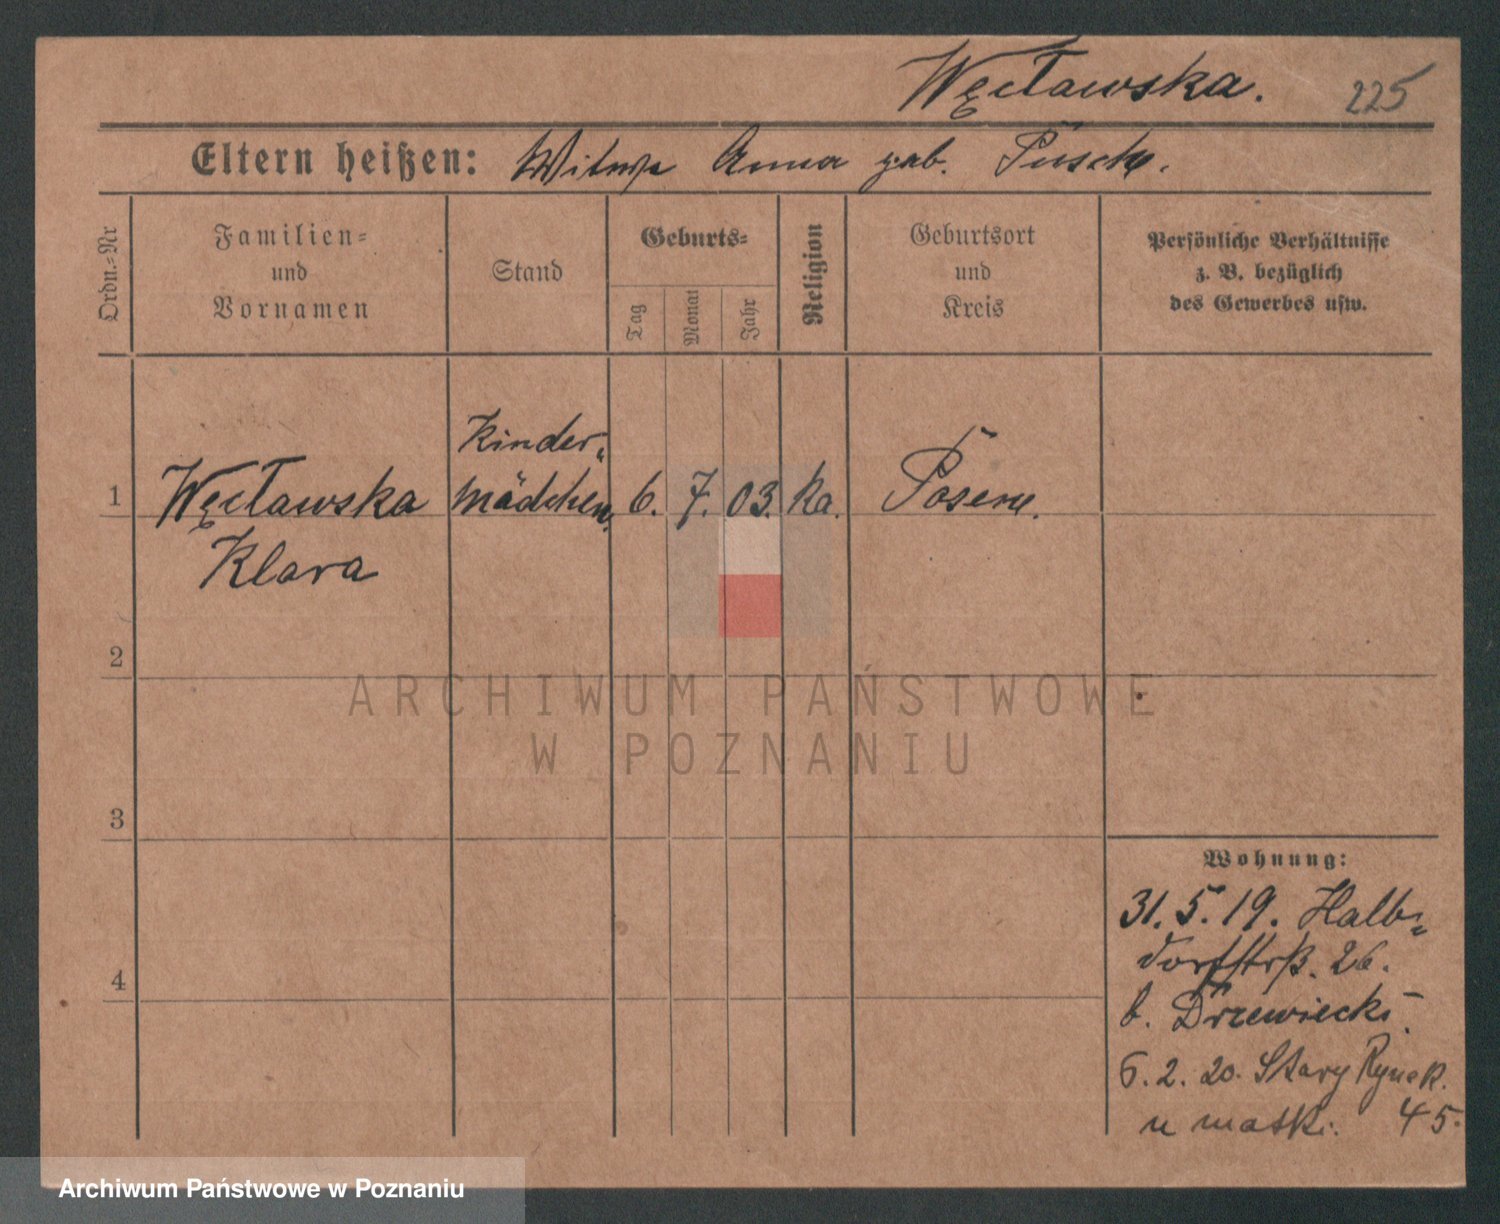 Węcławska. 225
Eltern heißen: Witwe Anna geb. Pusch.
Ordn.-Nr
Familien-
und
Vornamen
Stand
Geburts-
Tag
Monat
Jahr
Religion
Geburtsort
und
Kreis
Persönliche Verhältnisse
z. B. bezüglich
des Gewerbes usw.
Kinder-
1 Węcławska mädchen 6. 7. 03. Ka. Posen.
Klara
2
ARCHIWUM PAŃSTWOWE
W POZNANIU
3
4
Wohnung:
31. 5. 19. Halb-
dorfstrß. 26.
b. Drzewiecki.
6. 2. 20. Stary Rynek.
u matki. 45.
Archiwum Państwowe w Poznaniu